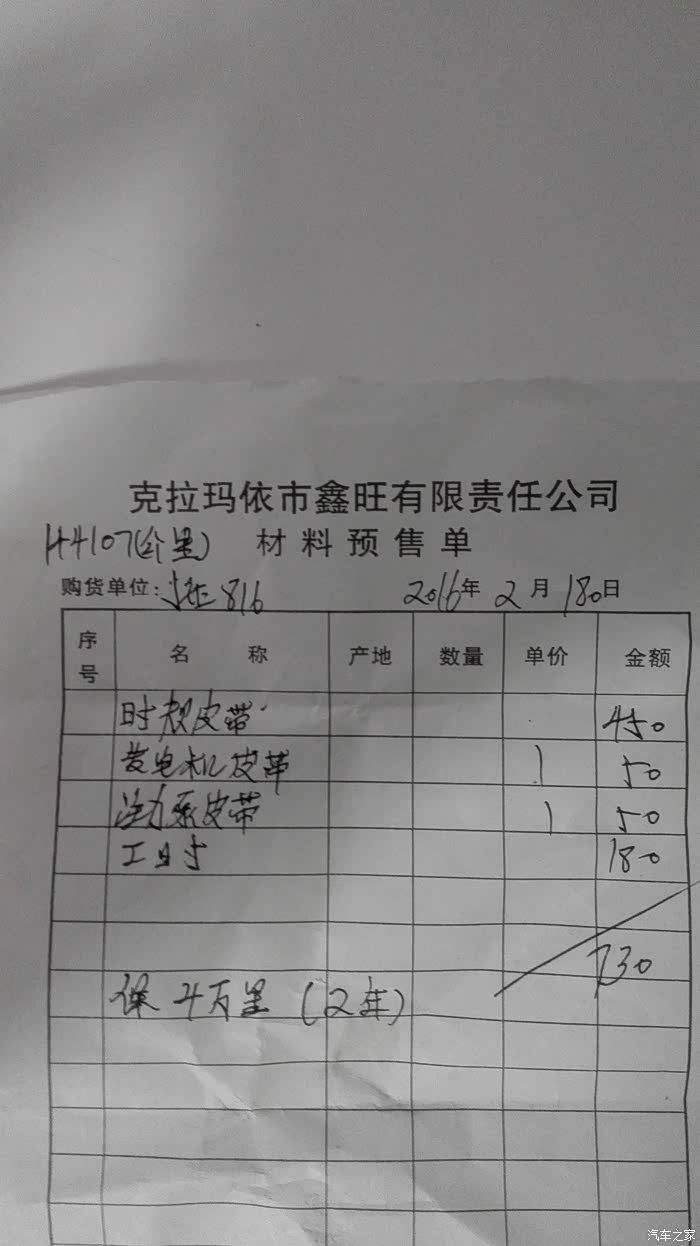 克拉玛依市鑫旺有限责任公司
44107(公里) 材料预售单
购货单位: 816 2016年 2月 180日
序号 名称 产地 数量 单价 金额
时规皮带 450
发电机皮带 1 50
助力泵皮带 1 50
工时 180
730
保4万里 (2年)
汽车之家